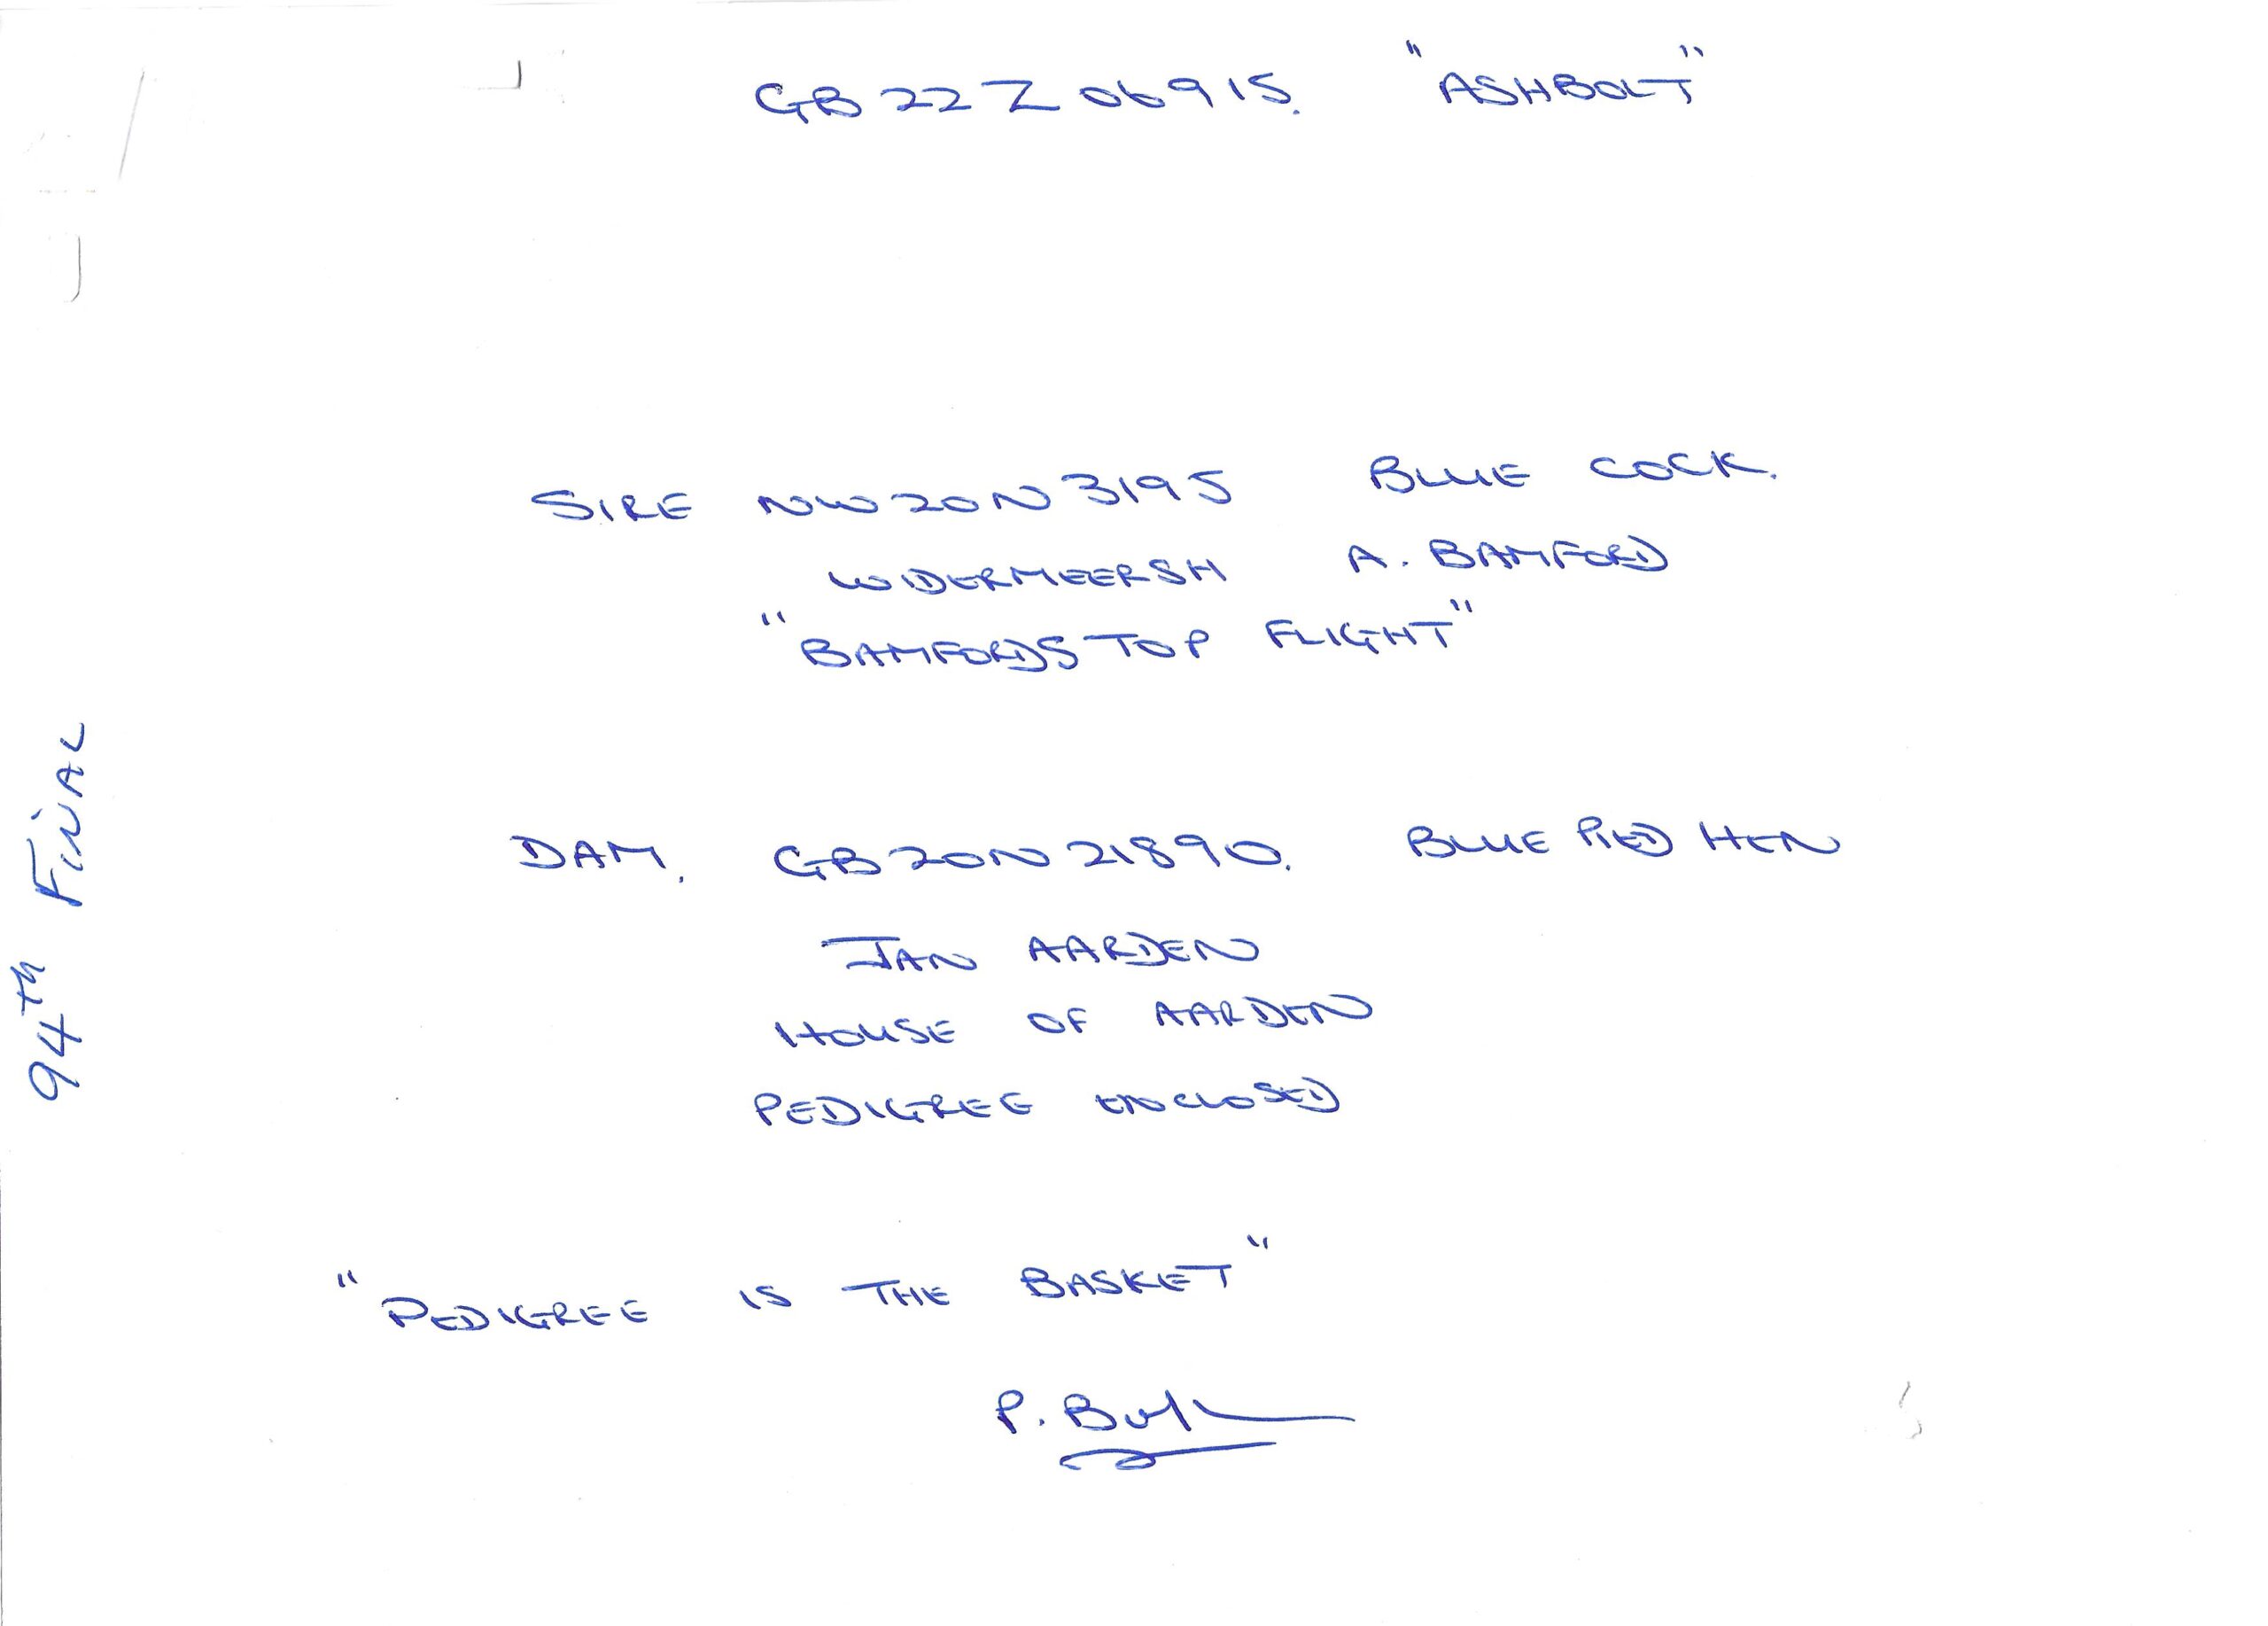 GB 22 Z 06915. "ASHBOLT"
SIRE NW20N3195 BLUE COCK.
WIDERMEERSH A. BAMFORD
"BAMFORDS TOP FLIGHT"
DAM. GB20N21890. BLUE PIED HEN
JAN AARDEN
HOUSE OF AARDEN
PEDIGREE ENCLOSED
"PEDIGREE IS THE BASKET"
P.
94TH FINAL